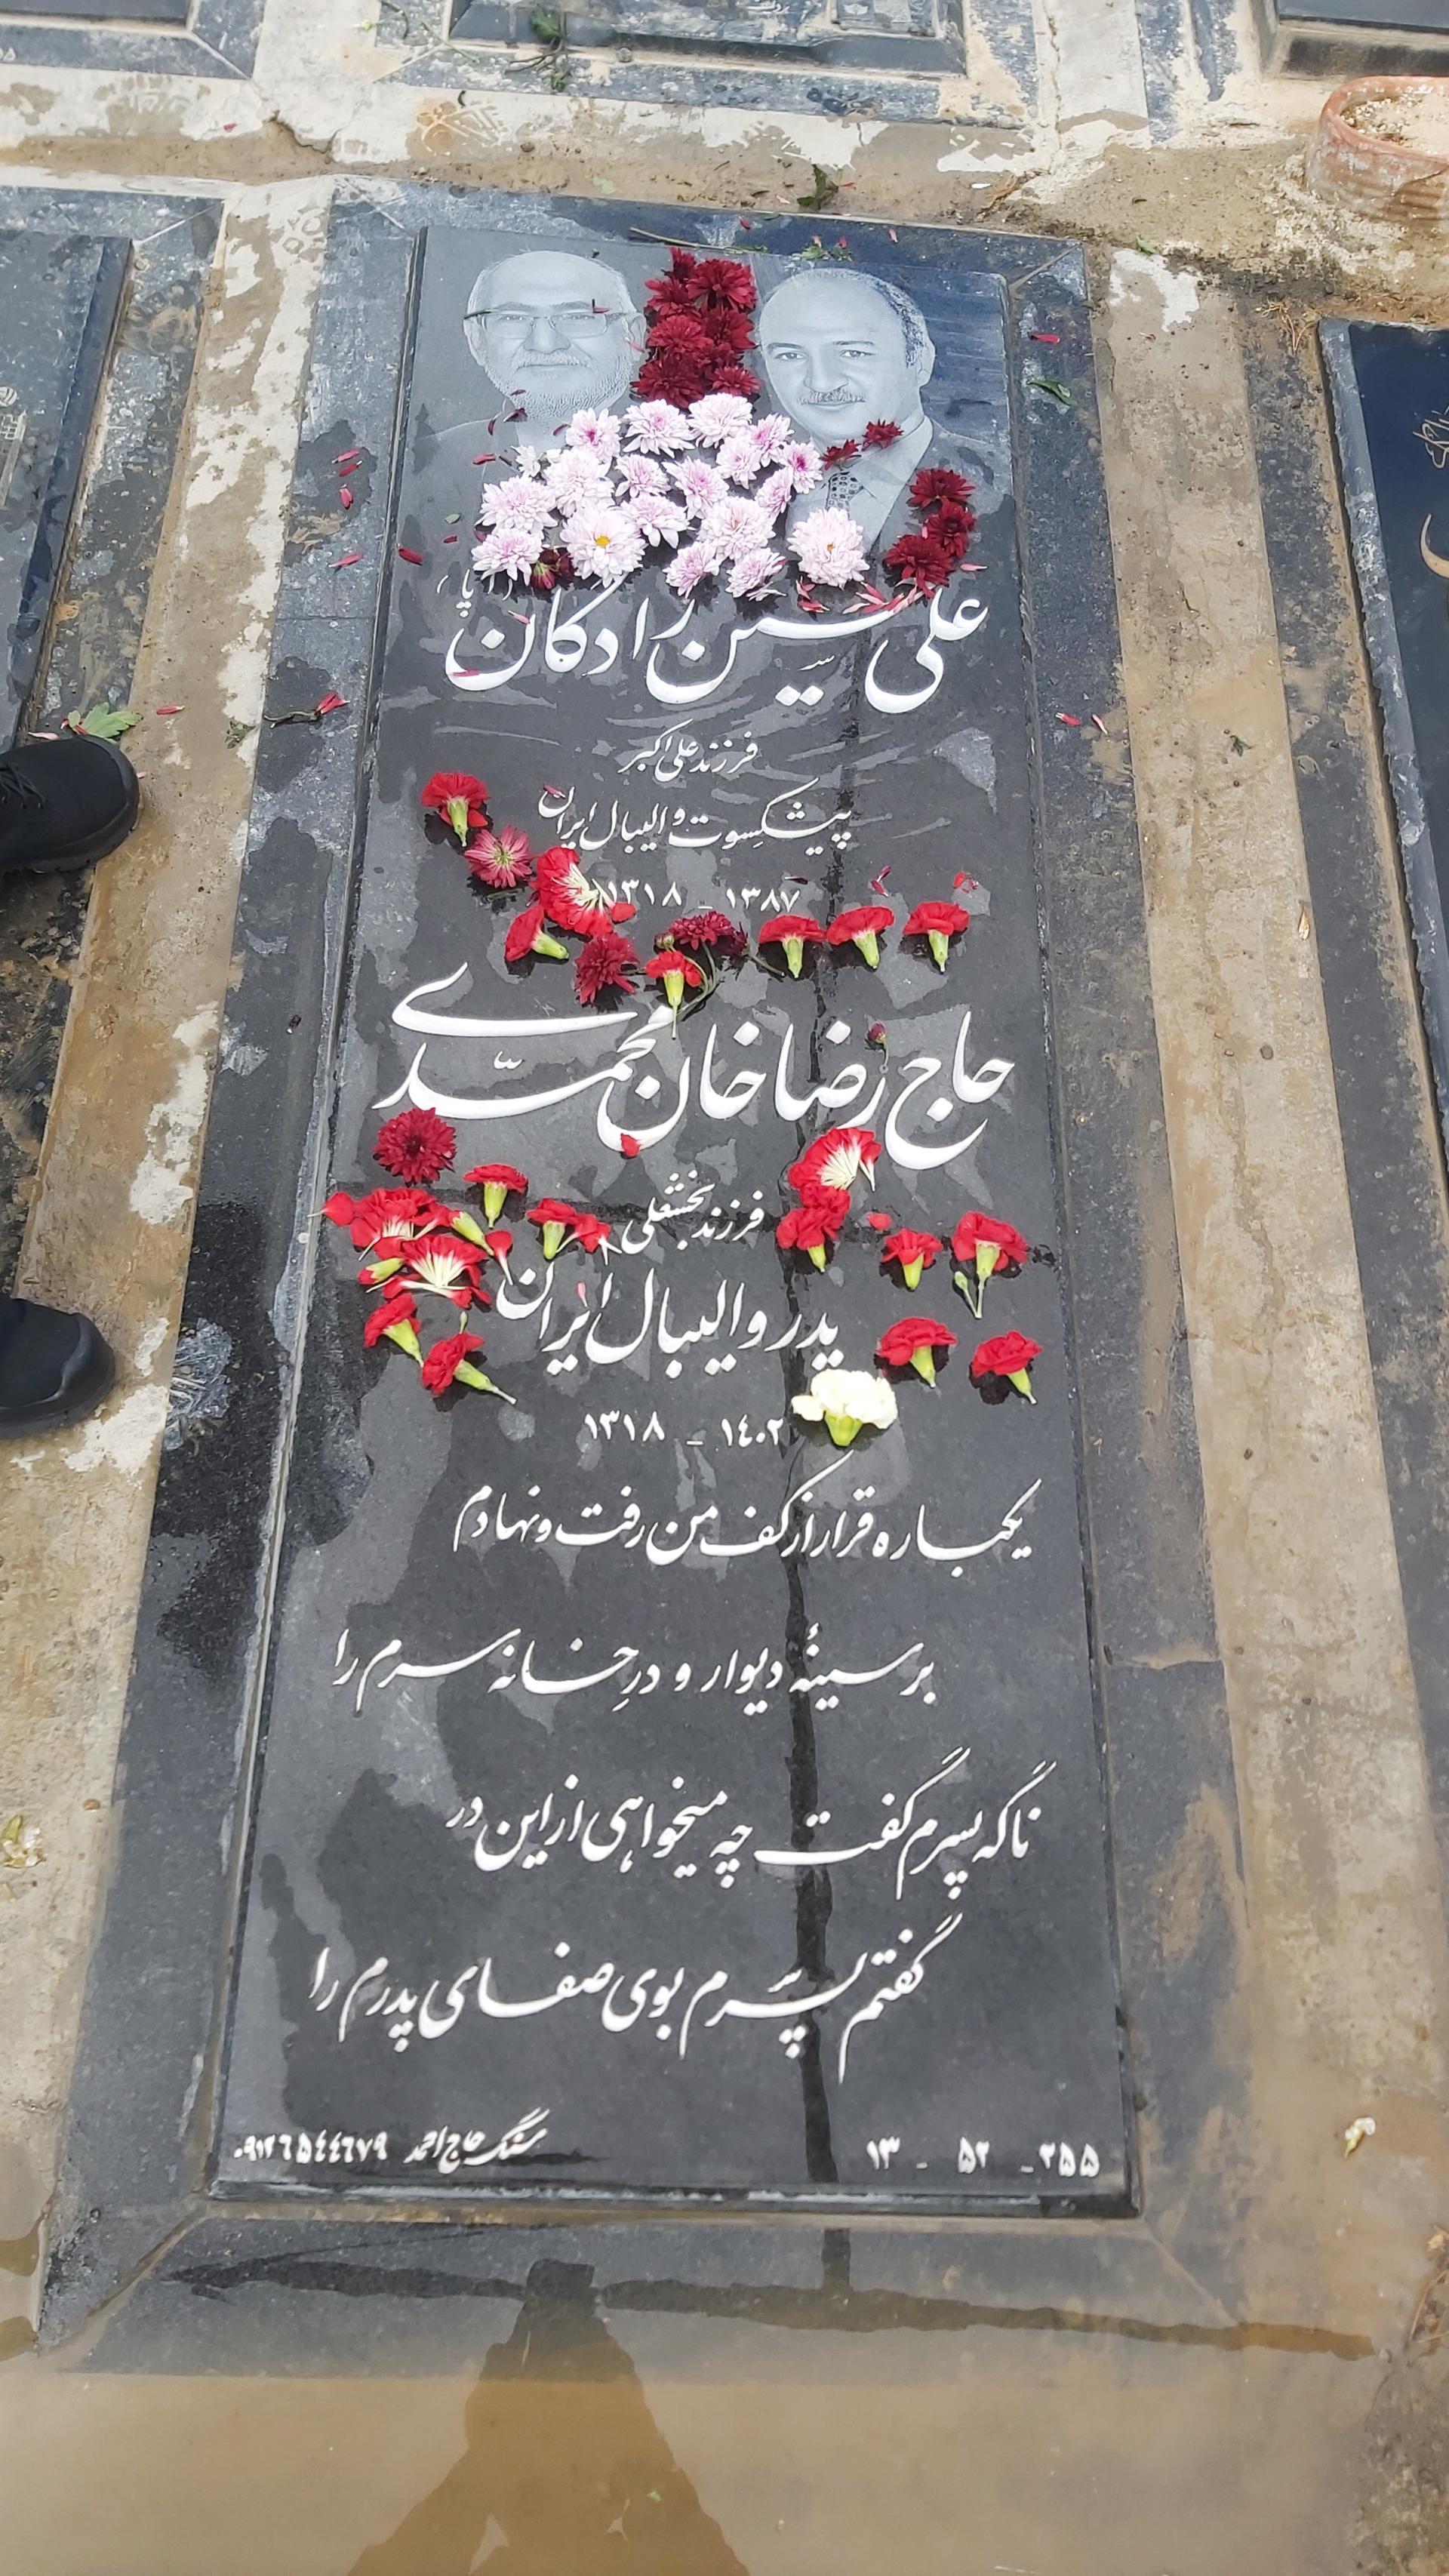 علی سیّین زادگان
فرزند علی اکبر
پیشکسوت والیبال ایران
۱۳۱۸ - ۱۳۸۷
حاج رضا خان محمّدی
فرزند بخشعلی
پدر والیبال ایران
۱۳۱۸ - ۱۴۰۲
یکباره قرار از کف من رفت و نهادم
بر سینهٔ دیوار و درِ خانه سرم را
ناگه پسرم گفت چه میخواهی از این در
گفتم پسَرم بوی صفای پدرم را
۲۵۵ - ۵۲ - ۱۳
سنگ حاج احمد ۰۹۱۲۶۵۴۴۶۷۹